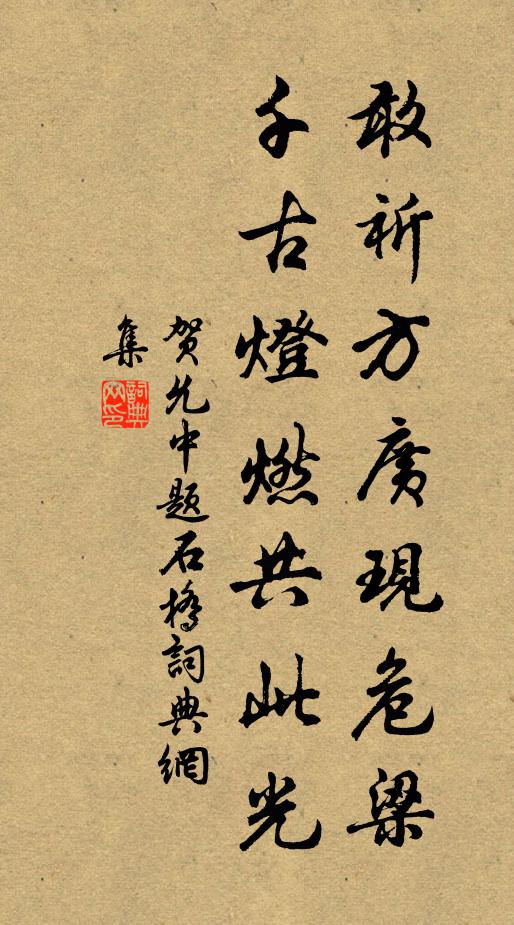 敢祈方廣現危梁
千古燈燃共此光
賀允中題石橋詞典網
集
詞典網印